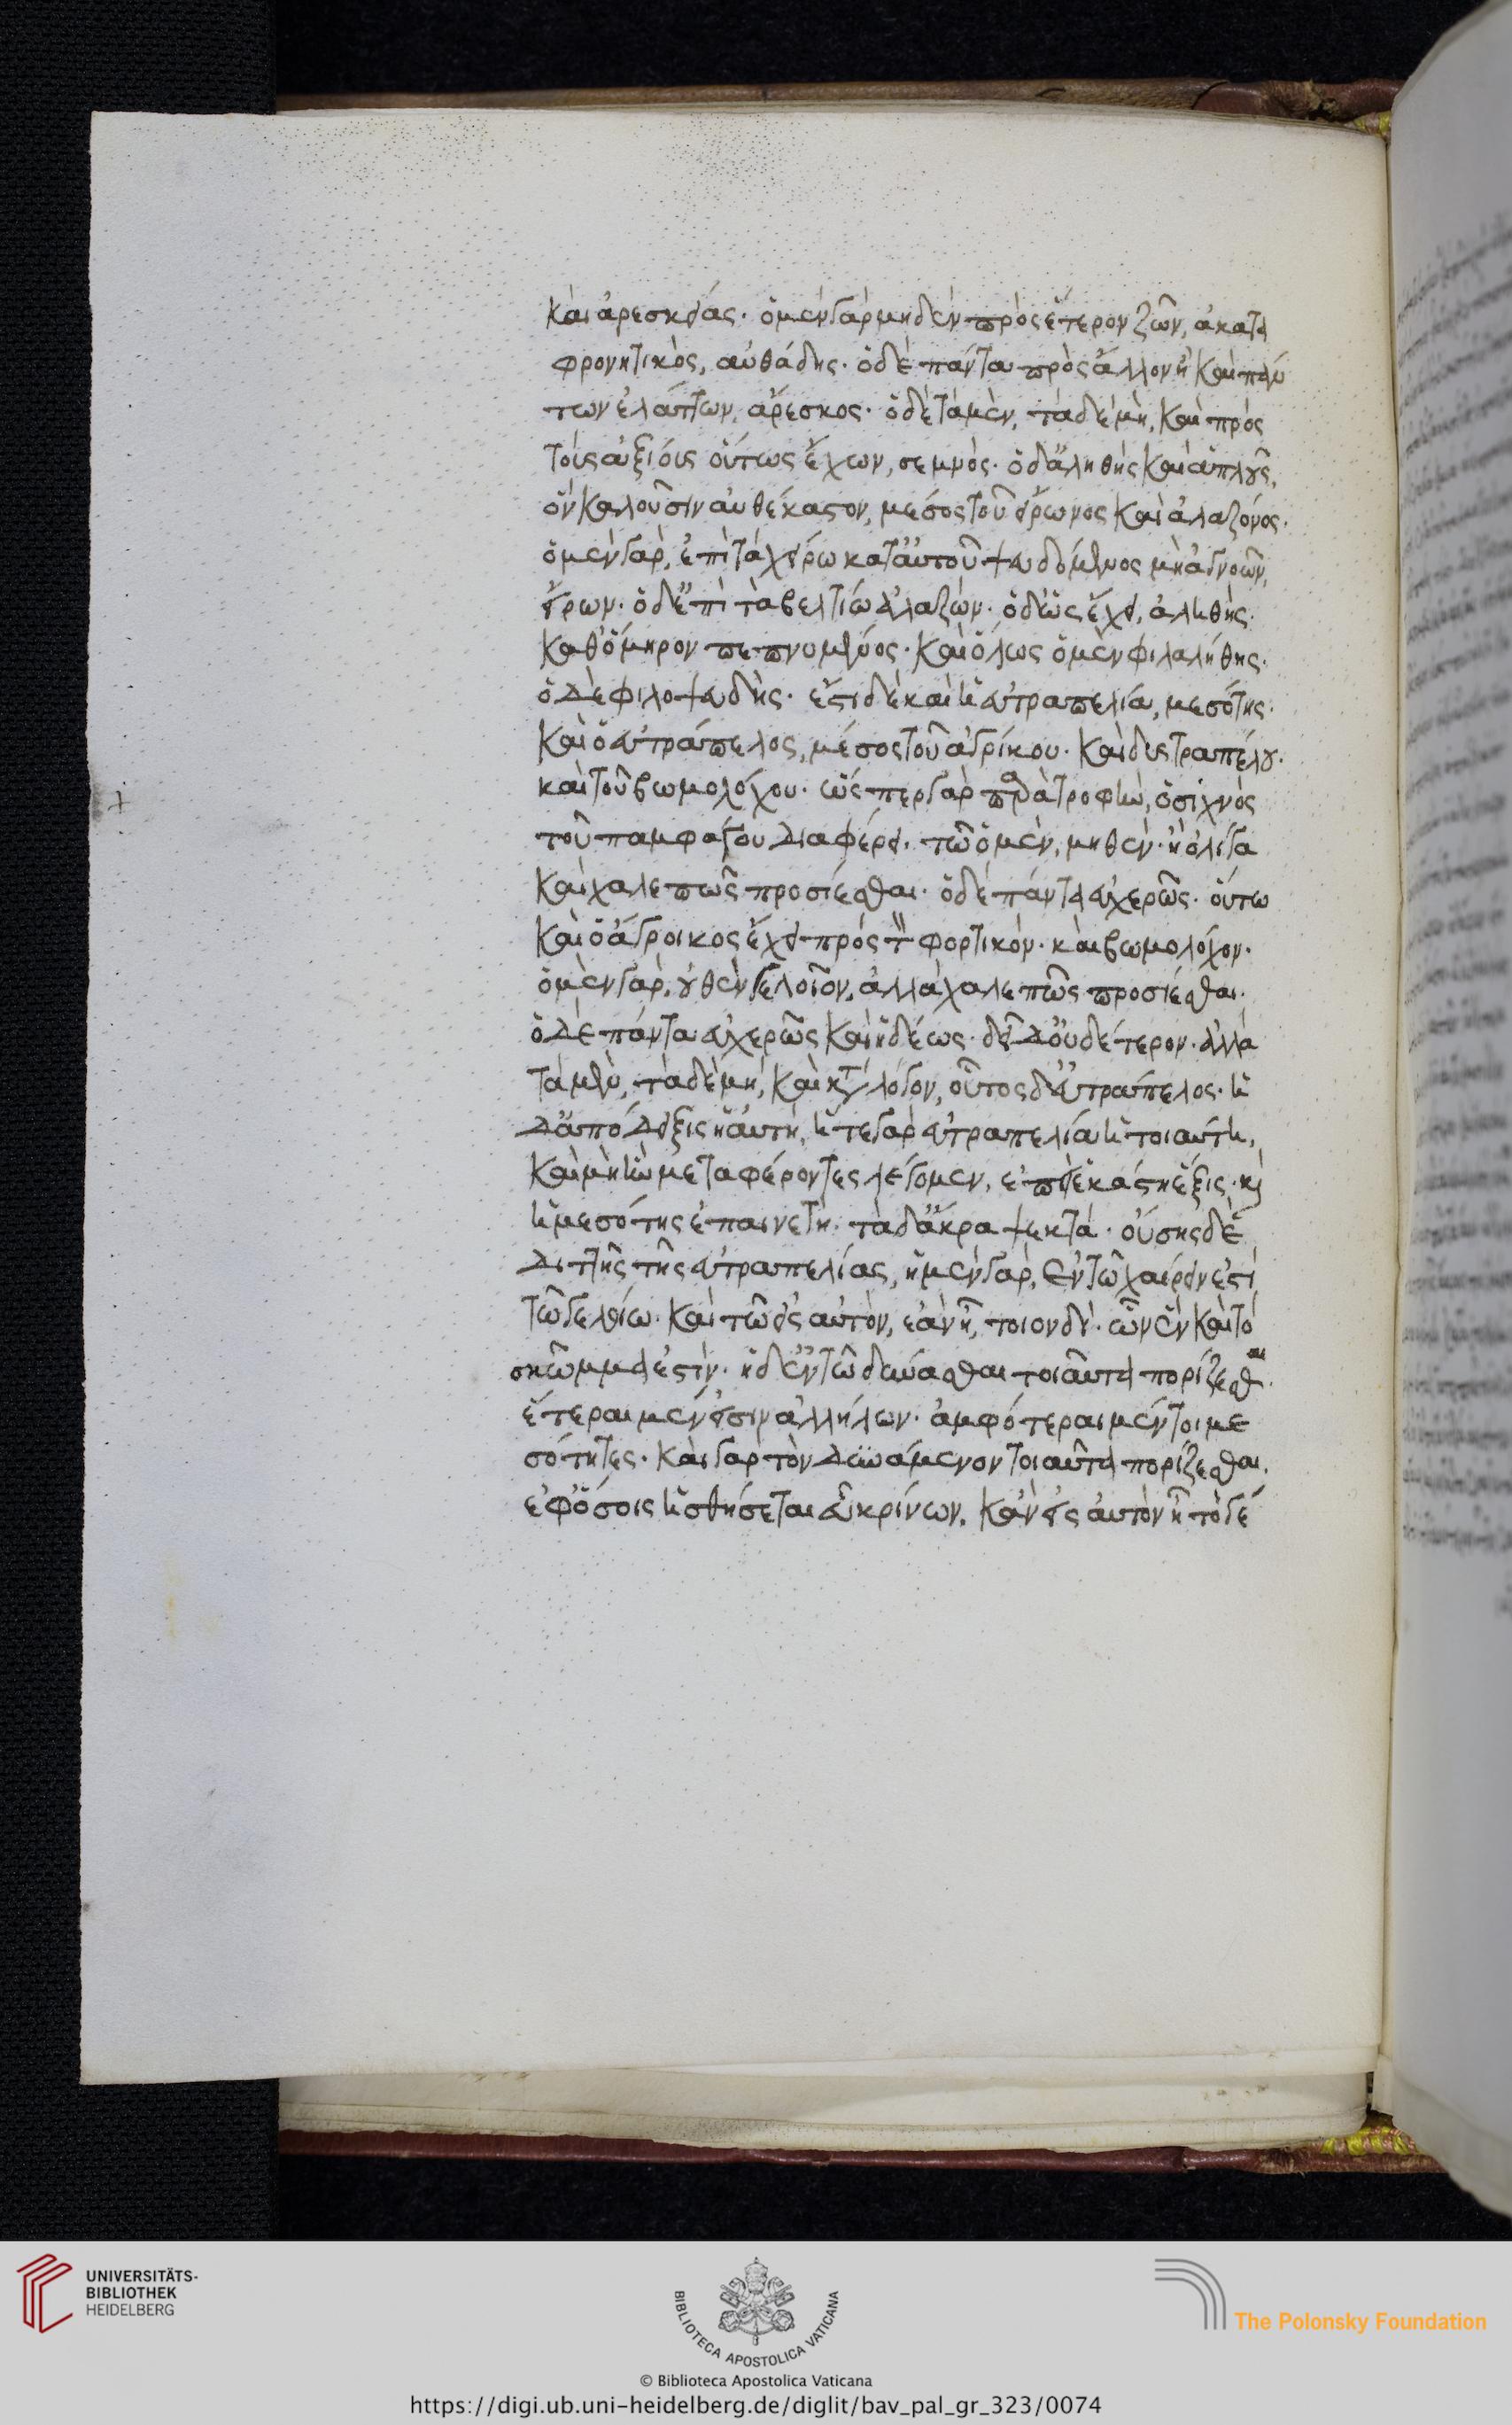 καὶ ἀρεσκείας· ὁ μὲν γὰρ μηδὲν πρὸς ἕτερον ζῶν, ἀκατα
φρονητικὸς, αὐθάδης· ὁ δὲ πάντα πρὸς ἄλλον ἢ καὶ πάν
των ἐλάττων, ἄρεσκος· ὁ δὲ τὰ μὲν, τὰ δὲ μὴ, καὶ πρὸς
τοὺς ἀξίους οὕτως ἔχων, σεμνός· ὁ δ' ἀληθὴς καὶ ἁπλοῦς,
ὃν καλοῦσιν αὐθέκαστον, μέσος τοῦ εἴρωνος καὶ ἀλαζόνος·
ὁ μὲν γὰρ, ἐπὶ τὰ χείρω κατ' αὐτοῦ ψευδόμενος μὴ ἀγνοῶν,
εἴρων· ὁ δ' ἐπὶ τὰ βελτίω ἀλαζών· ὁ δ' ὡς ἔχει, ἀληθής·
καθ' ὅμηρον πεπνυμένος· καὶ ὅλως ὁ μὲν φιλαλήθης·
ὁ δὲ φιλοψευδής· ἔστι δὲ καὶ ἡ εὐτραπελία, μεσότης·
καὶ ὁ εὐτράπελος, μέσος τοῦ ἀγρίκου· καὶ δυστραπέλου·
καὶ τοῦ βωμολόχου· ὥσπερ γὰρ περὶ τροφὴν, ὁ σιχνὸς
τοῦ παμφάγου διαφέρει· τῷ ὁ μὲν, μηθὲν· ἢ ὀλίγα
καὶ χαλεπῶς προσίεσθαι· ὁ δὲ πάντα εὐχερῶς· οὕτω
καὶ ὁ ἄγροικος ἔχει πρὸς τὸν φορτικόν· καὶ βωμολόχον·
ὁ μὲν γὰρ, οὐθὲν γελοῖον, ἀλλὰ χαλεπῶς προσίεσθαι·
ὁ δὲ πάντα εὐχερῶς καὶ ἡδέως· δεῖ δ' οὐδέτερον· ἀλλὰ
τὰ μὲν, τὰ δὲ μή, καὶ κατὰ λόγον, οὗτος δ' εὐτράπελος· ἡ
δ' ἀπόδειξις ἡ αὐτὴ, ἥ τε γὰρ εὐτραπελία ἡ τοιαύτη,
καὶ μὴ ἣν μεταφέροντες λέγομεν, ἐπιεικάστη ἕξις· καὶ
ἡ μεσότης ἐπαινετή· τὰ δ' ἄκρα ψεκτά· οὔσης δὲ
διττῆς τῆς εὐτραπελίας, ἡ μὲν γὰρ, ἐν τῷ χαίρειν ἐστὶ
τῷ γελοίω· καὶ τῷ εἰς αὐτὸν, ἐὰν ᾖ, τοιονδὶ· ὧν ἓν καὶ τὸ
σκῶμμα ἐστίν· ἡ δ' ἐν τῷ δύνασθαι τοιαῦτα πορίζεσθαι·
ἕτεραι μέν εἰσιν ἀλλήλων· ἀμφότεραι μέντοι με
σότητες· καὶ γὰρ τὸν δυνάμενον τοιαῦτα πορίζεσθαι,
ἐφ' ὅσοις ἡσθήσεται εὖ κρίνων, κἂν εἰς αὐτὸν ᾖ τὸ γέ
UNIVERSITÄTS-
BIBLIOTHEK
HEIDELBERG
BIBLIOTECA APOSTOLICA VATICANA
The Polonsky Foundation
© Biblioteca Apostolica Vaticana
https://digi.ub.uni-heidelberg.de/diglit/bav_pal_gr_323/0074